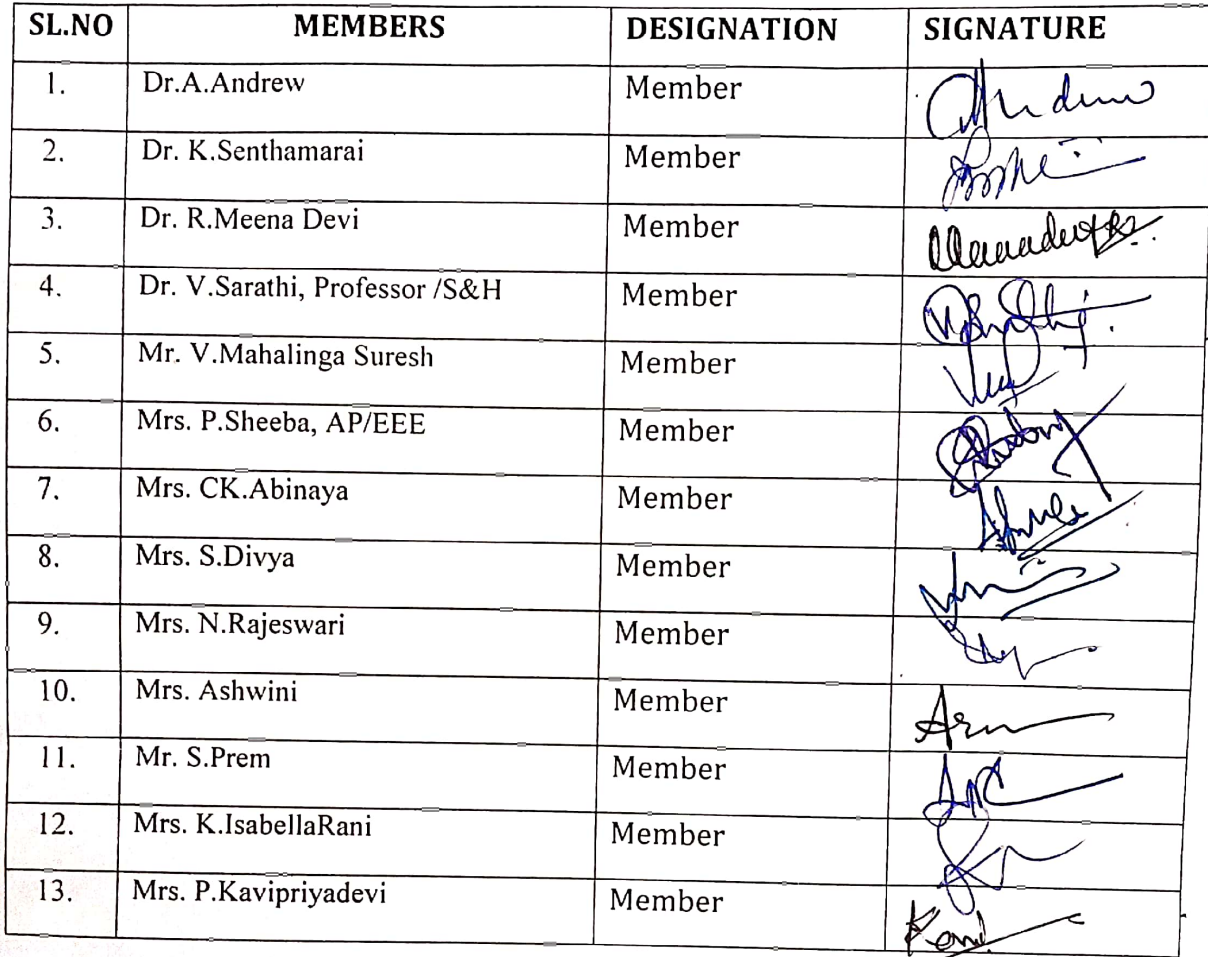 SL.NO MEMBERS DESIGNATION SIGNATURE
1. Dr.A.Andrew Member
2. Dr. K.Senthamarai Member
3. Dr. R.Meena Devi Member
4. Dr. V.Sarathi, Professor /S&H Member
5. Mr. V.Mahalinga Suresh Member
6. Mrs. P.Sheeba, AP/EEE Member
7. Mrs. CK.Abinaya Member
8. Mrs. S.Divya Member
9. Mrs. N.Rajeswari Member
10. Mrs. Ashwini Member
11. Mr. S.Prem Member
12. Mrs. K.IsabellaRani Member
13. Mrs. P.Kavipriyadevi Member